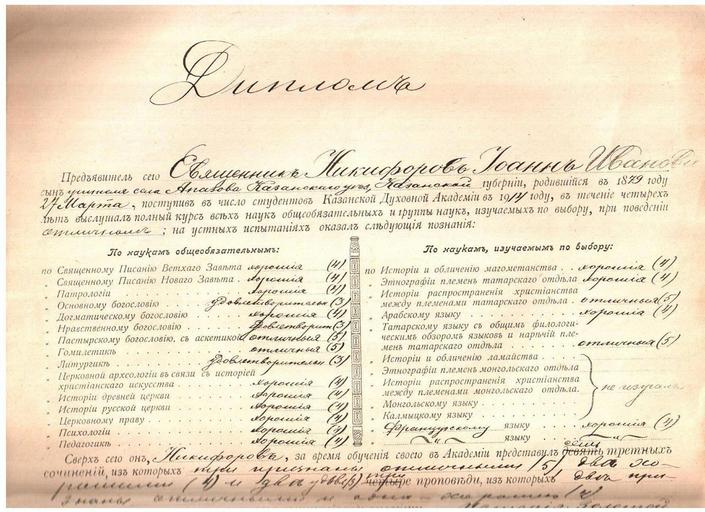 Дипломъ
Предъявитель сего Священникъ Никифоровъ Іоаннъ Иванови
сынъ учителя села Апазова Казанскаго уез, Казанской губерніи, родившійся въ 1879 году
27 Марта, поступив въ число студентовъ Казанской Духовной Академіи въ 1914 году, въ теченіе четырехъ
лѣтъ выслушалъ полный курсъ всѣхъ наукъ общеобязательныхъ и группы наукъ, изучаемыхъ по выбору, при поведеніи
отличномъ; на устныхъ испытаніяхъ оказалъ слѣдующія познанія:
По наукамъ общеобязательнымъ:
по Священному Писанію Ветхаго Завѣта хорошія (4)
„ Священному Писанію Новаго Завѣта . хорошія (4)
„ Патрологіи хорошія (4)
„ Основному богословію удовлетворительн (3)
„ Догматическому богословію хорошія (4)
„ Нравственному богословію удовлетворит (3)
„ Пастырскому богословію, съ аскетикой отличныя (5)
„ Гомилетикѣ отличныя (5)
„ Литургикѣ удовлетворительн (3)
„ Церковной археологіи въ связи съ исторіей
христіанскаго искусства хорошія (4)
„ Исторіи древней церкви хорошія (4)
„ Исторіи русской церкви хорошія (4)
„ Церковному праву хорошія (4)
„ Психологіи хорошія (4)
„ Педагогикѣ хорошія (4)
По наукамъ, изучаемымъ по выбору:
по Исторіи и обличенію магометанства хорошія (4)
„ Этнографіи племенъ татарскаго отдѣла хорошія (4)
„ Исторіи распространенія христіанства
между племенами татарскаго отдѣла . отличныя (5)
„ Арабскому языку хорошія (4)
„ Татарскому языку съ общимъ филологи-
ческимъ обзоромъ языковъ и нарѣчій пле-
менъ татарскаго отдѣла отличныя (5)
„ Исторіи и обличенію ламайства
„ Этнографіи племенъ монгольскаго отдѣла
„ Исторіи распространенія христіанства
между племенами монгольскаго отдѣла.
не изучалъ
„ Монгольскому языку
„ Калмыцкому языку
„ Французскому языку хорошія (4)
„ языку
Сверхъ сего онъ, Никифоровъ, за время обученія своего въ Академіи представилъ девять третныхъ
сочиненій, изъ которыхъ три признаны отличными (5) два хо-
рошими (4) и два удовл (3) четыре проповѣди, изъ которыхъ двѣ при-
знаны отличными и одна - хорошею (4)